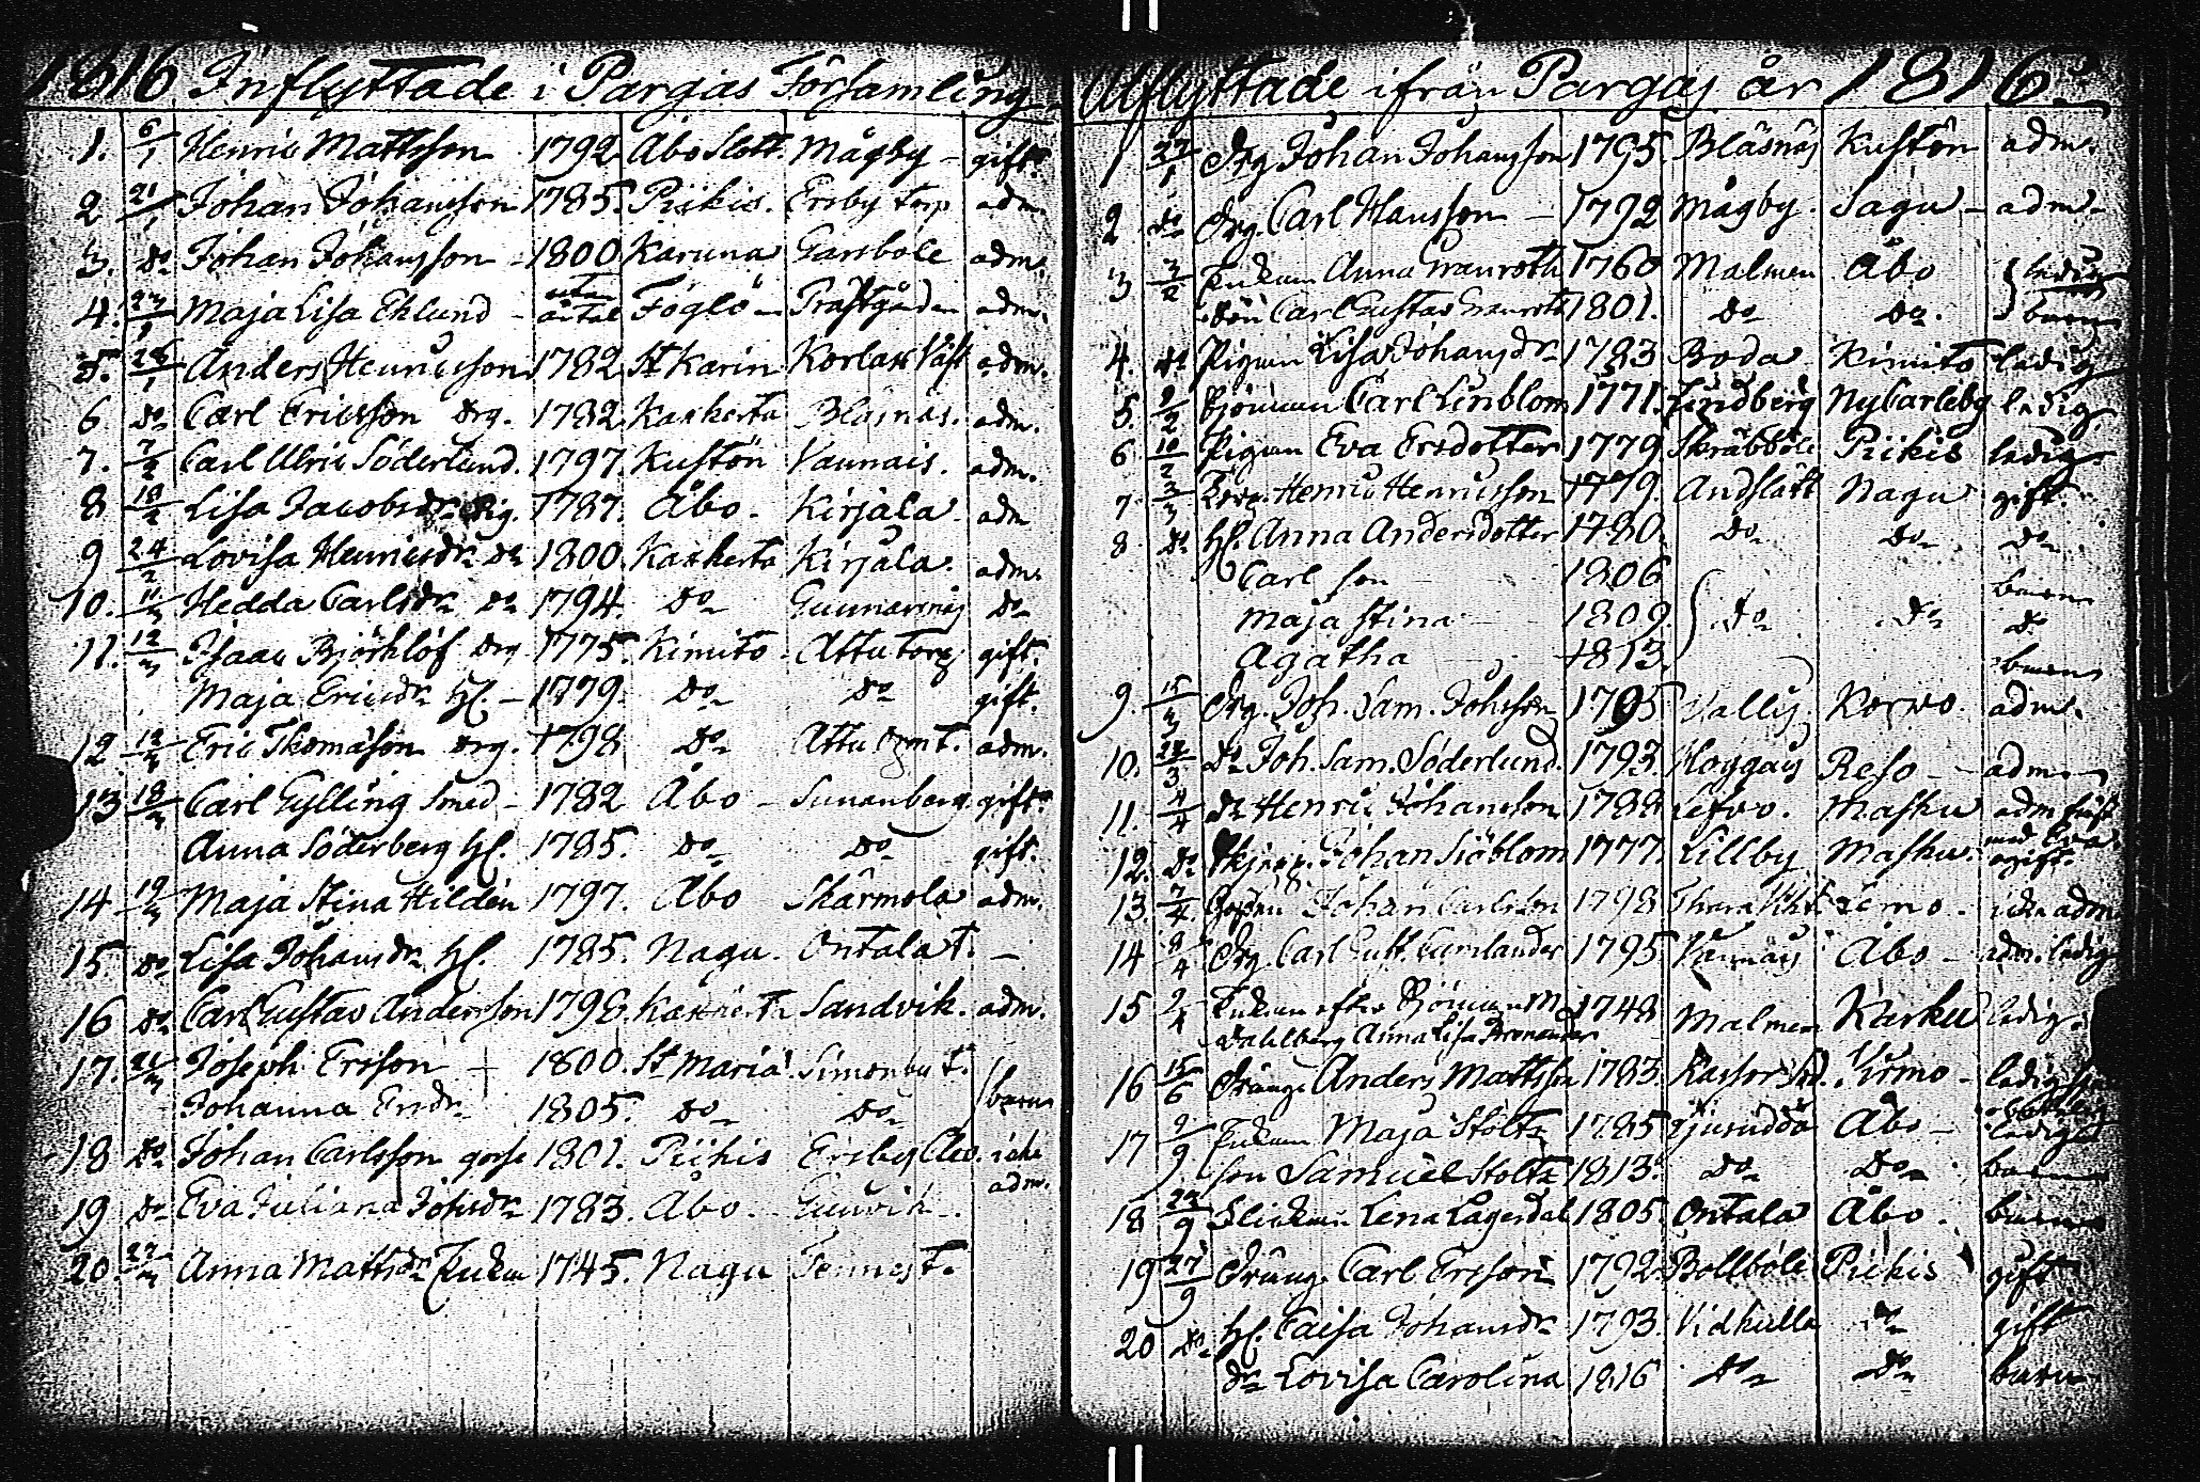 1816 Inflyttade i Pargas Församling
1. 6/1 Henric Mattsson 1792 Åbo Slott. Mågby - gift.
2 21/1 Johan Johansson 1785. Piikis. Ersby torp adm.
3. do Johan Johansson - 1800. Karuna Garsböle adm.
4. 27/1 Maja Lisa Eklund - utan årtal Föglö - Prästgården adm.
5. 28/1 Anders Henricsson 1782 St Karin Korlax Väst adm.
6 do Carl Ericsson drg. 1782 Kakkerta Bläsnäs. adm.
7. 7/2 Carl Ulric Söderlund. 1797. Kustön Vannais. adm.
8 10/2 Lisa Jacobsdr. Pig. 1787. Åbo - Kirjala - adm
9 24/2 Lovisa Henricsdr do 1800. Kakkerta Kirjala. adm.
10. 11/3 Hedda Carlsdr do 1794. do Gunnarsnäs do
11. 12/3 Isaac Björklöf drg 1775. Kimito - Attu torp gift.
Maja Ericsdr H. - 1779. do do gift.
12 12/3 Eric Thomasson drg. 1798 do Attu adm.
13 18/3 Carl Gylling Smed - 1782 Åbo - Sunnanberg gift.
Anna Söderberg H. 1785. do do gift.
14 19/3 Maja Stina Hildén 1797. Åbo Skärmola adm.
15. do Lisa Johansdr H. 1785. Nagu. Ontala t. -
16 do Carl Gustav Andersson 1798. Kakkerta Sandvik. adm.
17. 21/3 Joseph Ersson + 1800. St Maria. Simonby t.
Johanna Ersdr 1805. do do } barn
18 do Johan Carlsson gosse 1801. Piikis Ersby icke adm.
19 do Eva Juliana Johsdr 1783. Åbo -
20. 27/3 Anna Mattsdr Enkan 1745. Nagu Tennäs t.
Utflyttade ifrån Pargas år 1816.
1 27/1 Drg Johan Johansson 1795. Bläsnäs Kustön adm.
2 do Drg. Carl Hansson - 1792 Mågby. Sagu - adm -
3 2/2 Enkan Anna Granroth 1760 Malmen Åbo } ledig
Son Carl Gustav Granroth 1801. do do. barn
4. do Pigan Lisa Johansdr 1783 Boda Kimito ledig
5. 9/2 Björman Carl Linblom 1771. Lindberg NyCarleby ledig
6 10/2 Pigan Eva Ersdotter 1779 Skräbböle Piikis ledig.
7. 3/3 Henric Henricsson 1779. Andslätt Nagu gift.
8 do H. Anna Andersdotter 1780. do do do
Carl son 1806 barn
Maja Stina 1809 } do do do
Agatha 1813. barn
9. 15/3 Drg. Joh. Sam. Johsson 1795 Vallis Korpo. adm.
10. 24/3 do Joh. Sam. Söderlund. 1793. Hoggais Reso - adm -
11. 4/4 do Henric Johansson 1788 Lefvo. Masku adm fäst med Eva
12. do Johan Siöblom 1777. Lillby Masku. ogift.
13. 7/4 Gossen Johan Carlsson 1798 Lemo - icke adm
14 9/4 Drg. Carl Gust. Cumlander 1795 Vannais Åbo - adm. ledig
15 9/4 Enkan efter Björman M. 1748 Malmen Karku ledig.
Dahlberg Anna Lisa
16 15/6 Drängen Anders Mattsson 1783. Virmo - ledig
17 9/9 Enkan Maja Stoltz 1785 Åbo - ledig
son Samuel Stoltz 1813. do do barn
18 23/9 Flickan Lena Lagerdal 1805 Ontala Åbo. barn
19 27/9 Dräng. Carl Ersson 1792. Bollböle Piikis gift
20 do H. Caisa Johansdr 1793. Vidkulla do gift
dr Lovisa Carolina 1816 do do barn